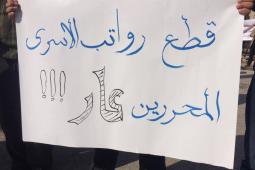 قطع رواتب الأسرى
المحررين عار !!!